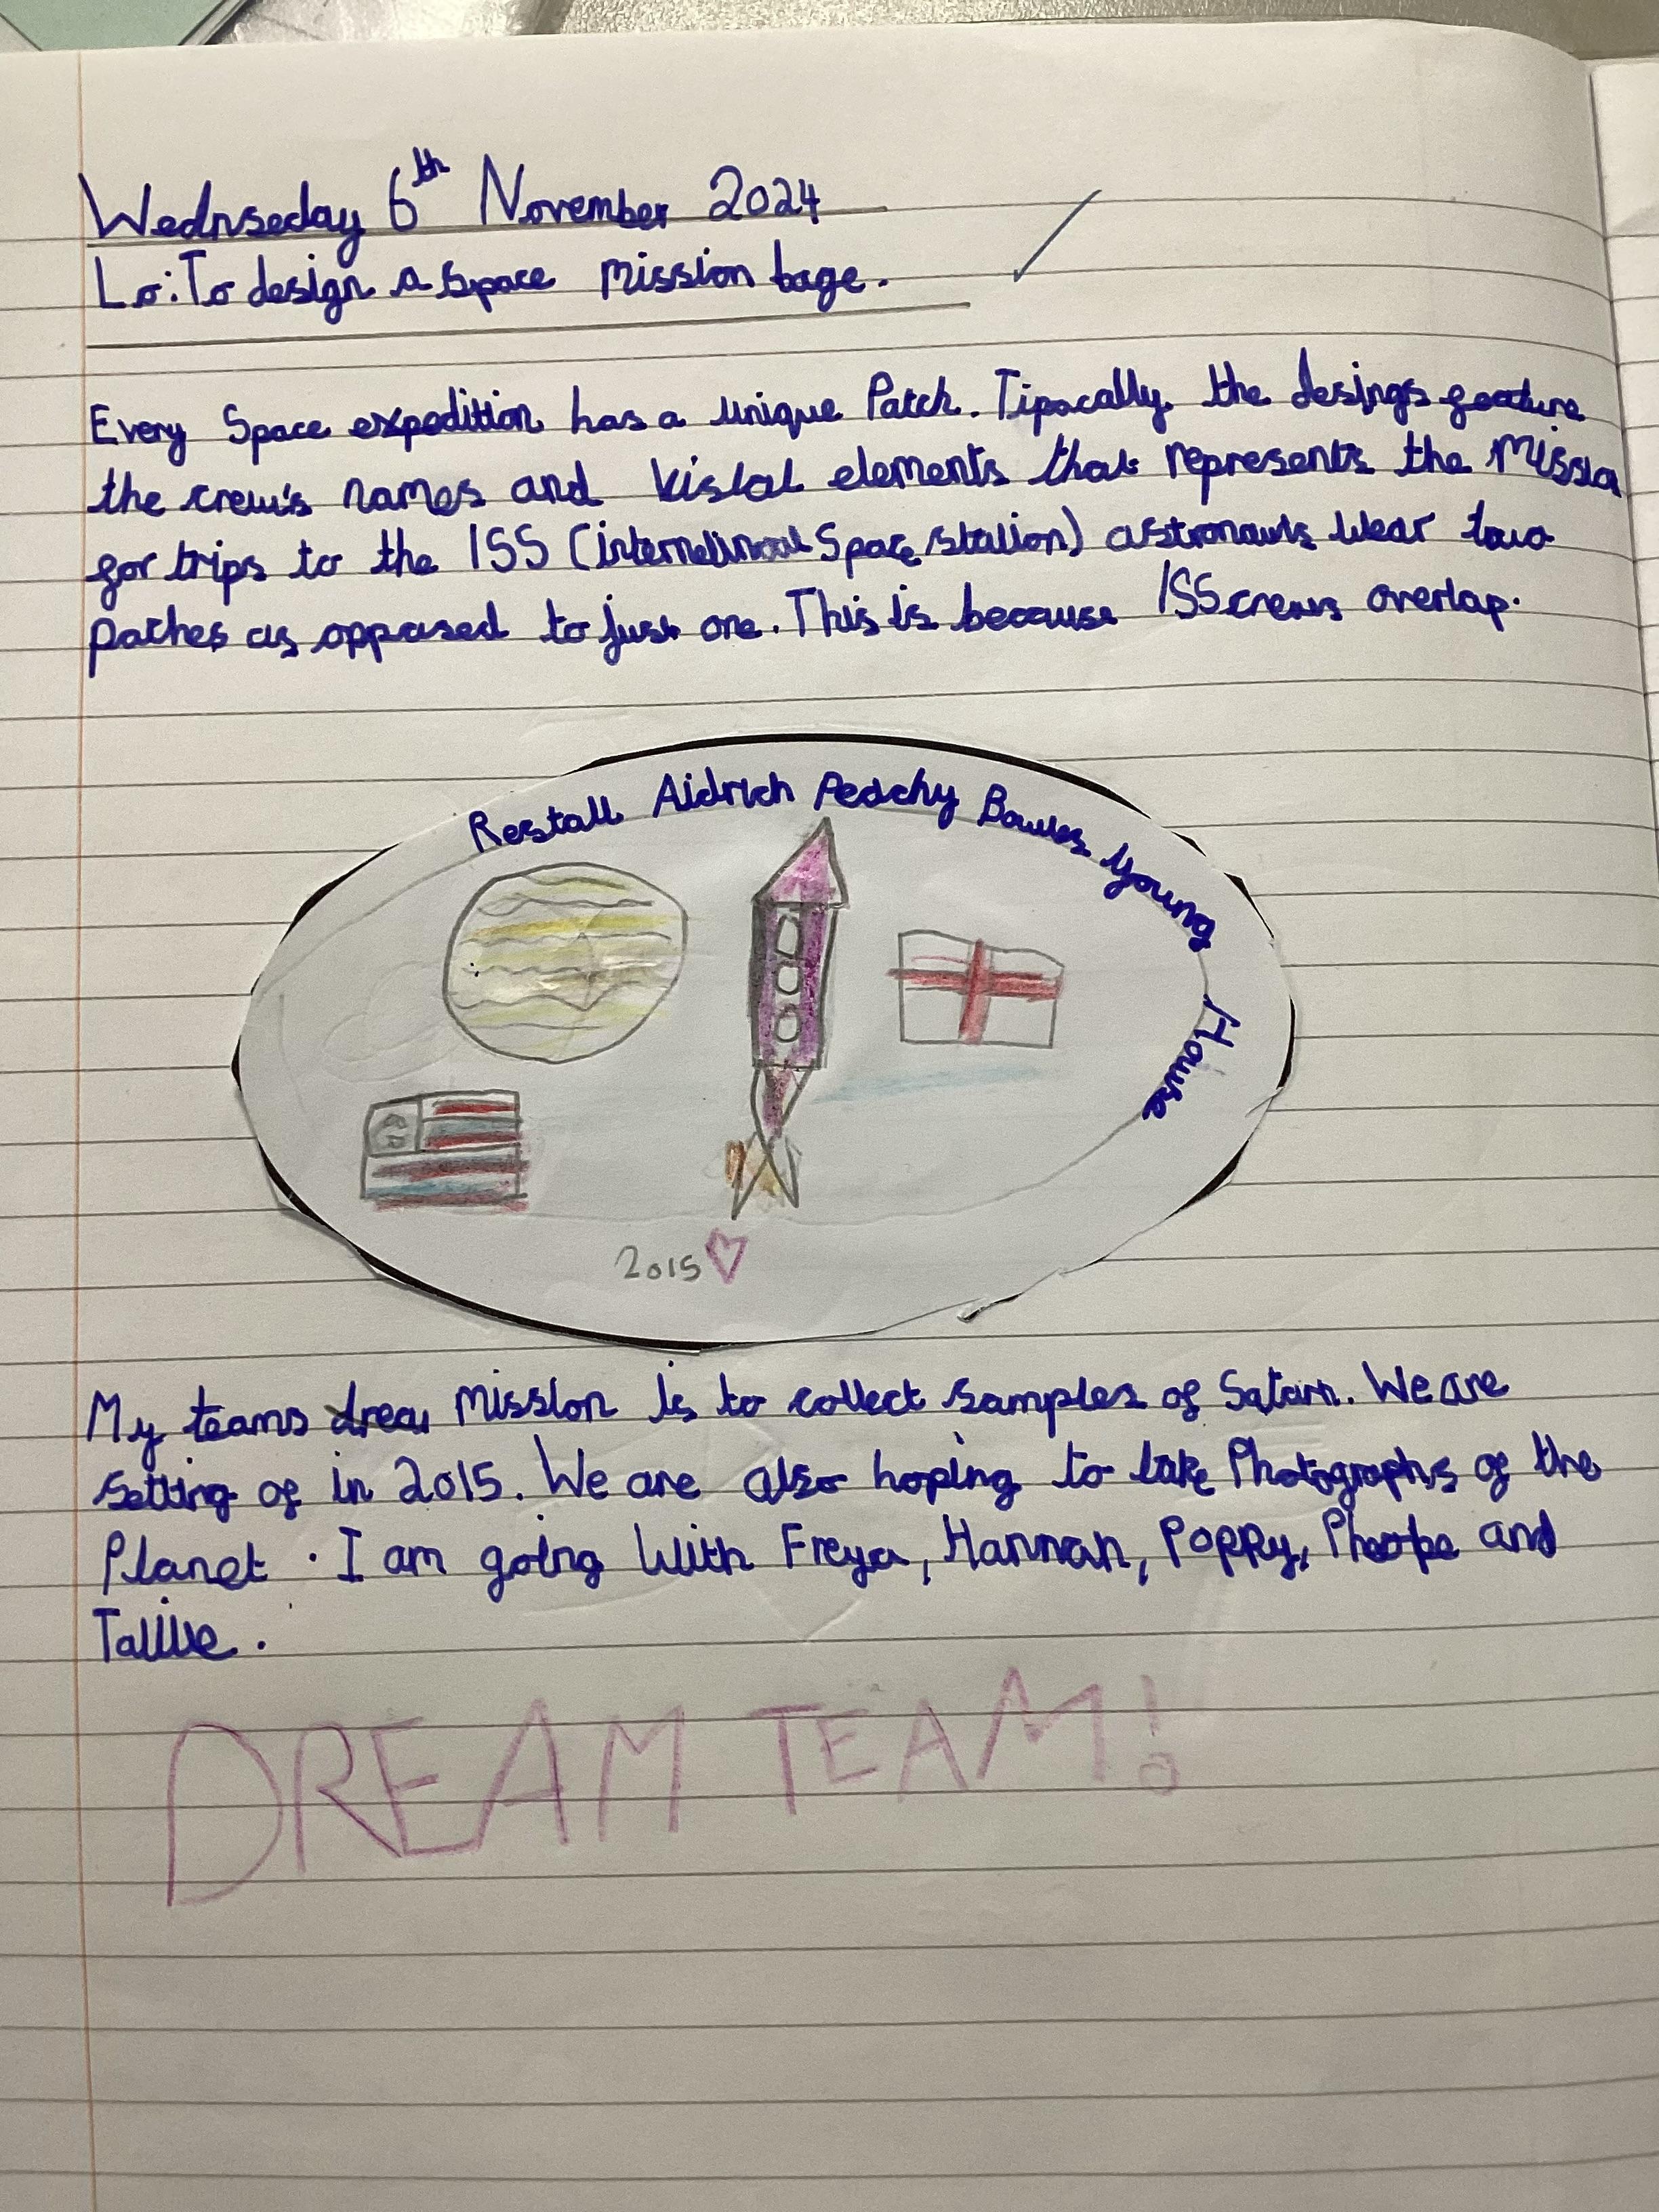 Wednseday 6th November 2024
Lo: To design a space mission bage.
Every Space expedition has a unique Patch. Tipacally the desings feature
the crew's names and visial elements that represents the Missio
for trips to the ISS (internetinoal Space station) astronauts wear two
paches as opposed to just one. This is because ISS crews overlap.
Restall Aldrich Peachy Bowles Young House
2015
My teams mission is to collect samples of Saturn. We are
setting of in 2015. We are also hoping to take Photographs of the
Planet. I am going with Freya, Hannah, Poppy, Pheobe and
Tallie.
DREAM TEAM!